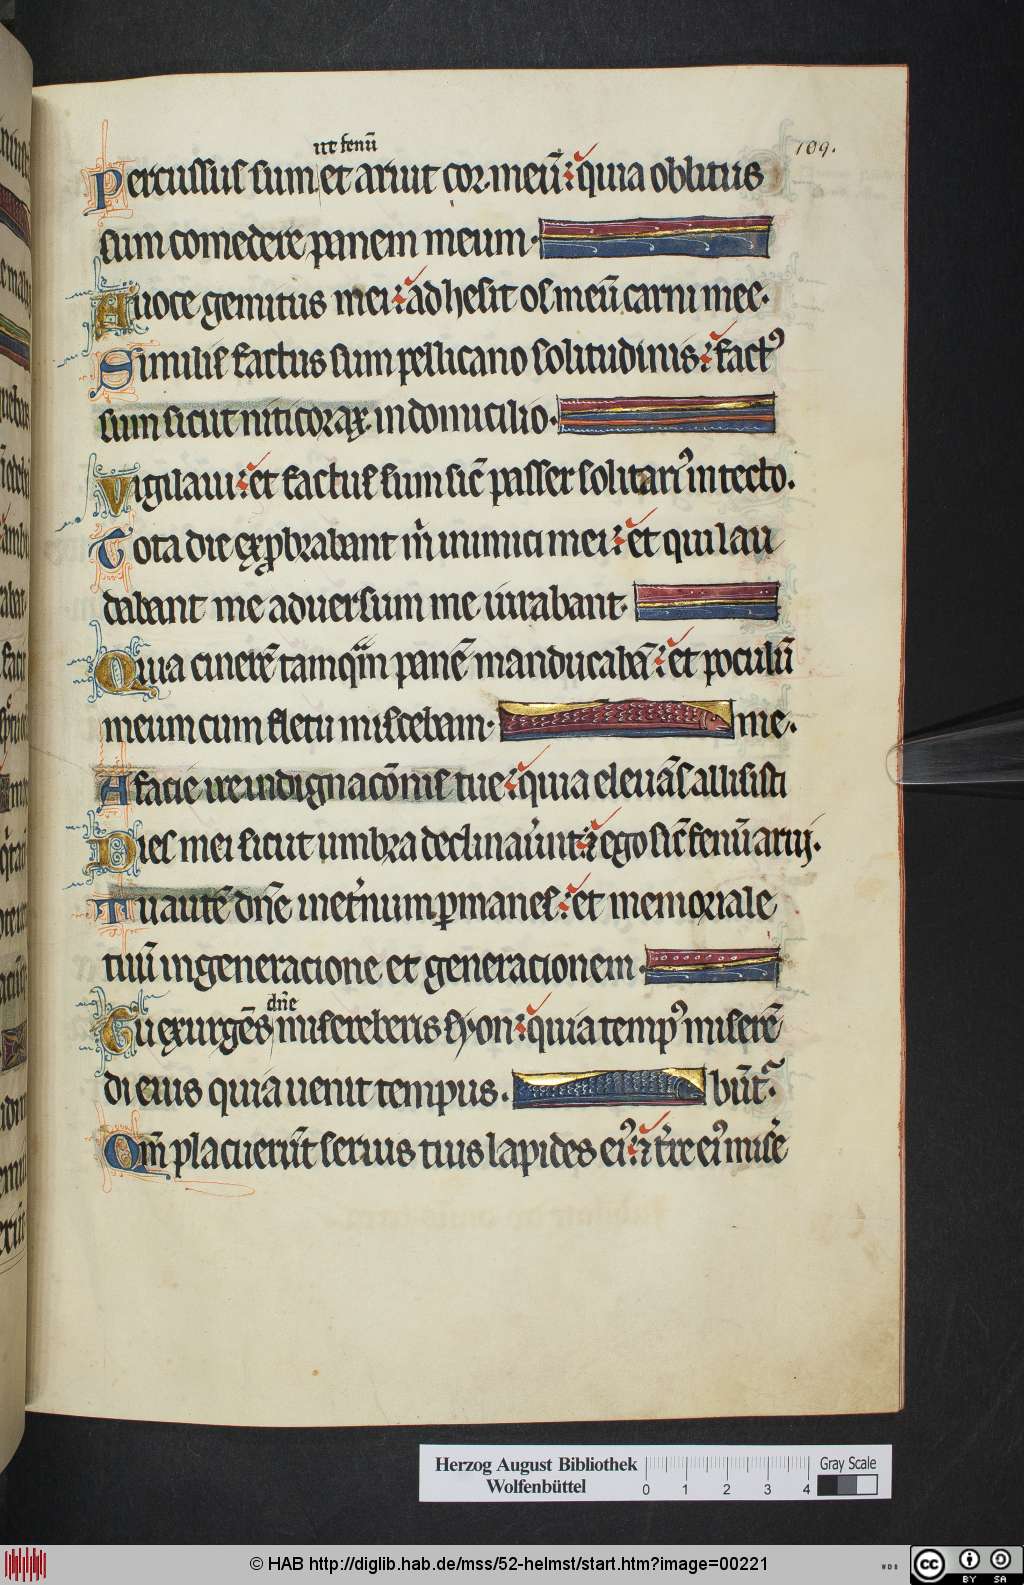 109.
ut fenū
Percussus sum et aruit cor meū quia oblitus
sum comedere panem meum.
A uoce gemitus mei adhesit os meū carni mee.
Similis factus sum pellicano solitudinis fact⁹
sum sicut niticorax in domicilio.
Vigilaui et factus sum sic̄ passer solitari⁹ in tecto.
Tota die exprobrabant m̄ inimici mei et qui lau
dabant me aduersum me iurabant.
Quia cinerē tamquam panē manducabā et poculū
meum cum fletu miscebam. me.
A facie ire indignacōnis tue quia eleuās allisisti
Dies mei sicut umbra declinauerunt ⁊ ego sic̄ fenū arui.
Tu autē dn̄e inet̄num permanes et memoriale
tuū in generacione et generacionem.
dn̄e
Tu exurgēs misereberis syon quia temp⁹ miserē
di eius quia uenit tempus. būt
Qm̄ placuerūt seruis tuis lapides ei⁹ ⁊ t̄re ei⁹ misere
Herzog August Bibliothek
Wolfenbüttel
0 1 2 3 4
Gray Scale
© HAB http://diglib.hab.de/mss/52-helmst/start.htm?image=00221
WDB
cc BY SA